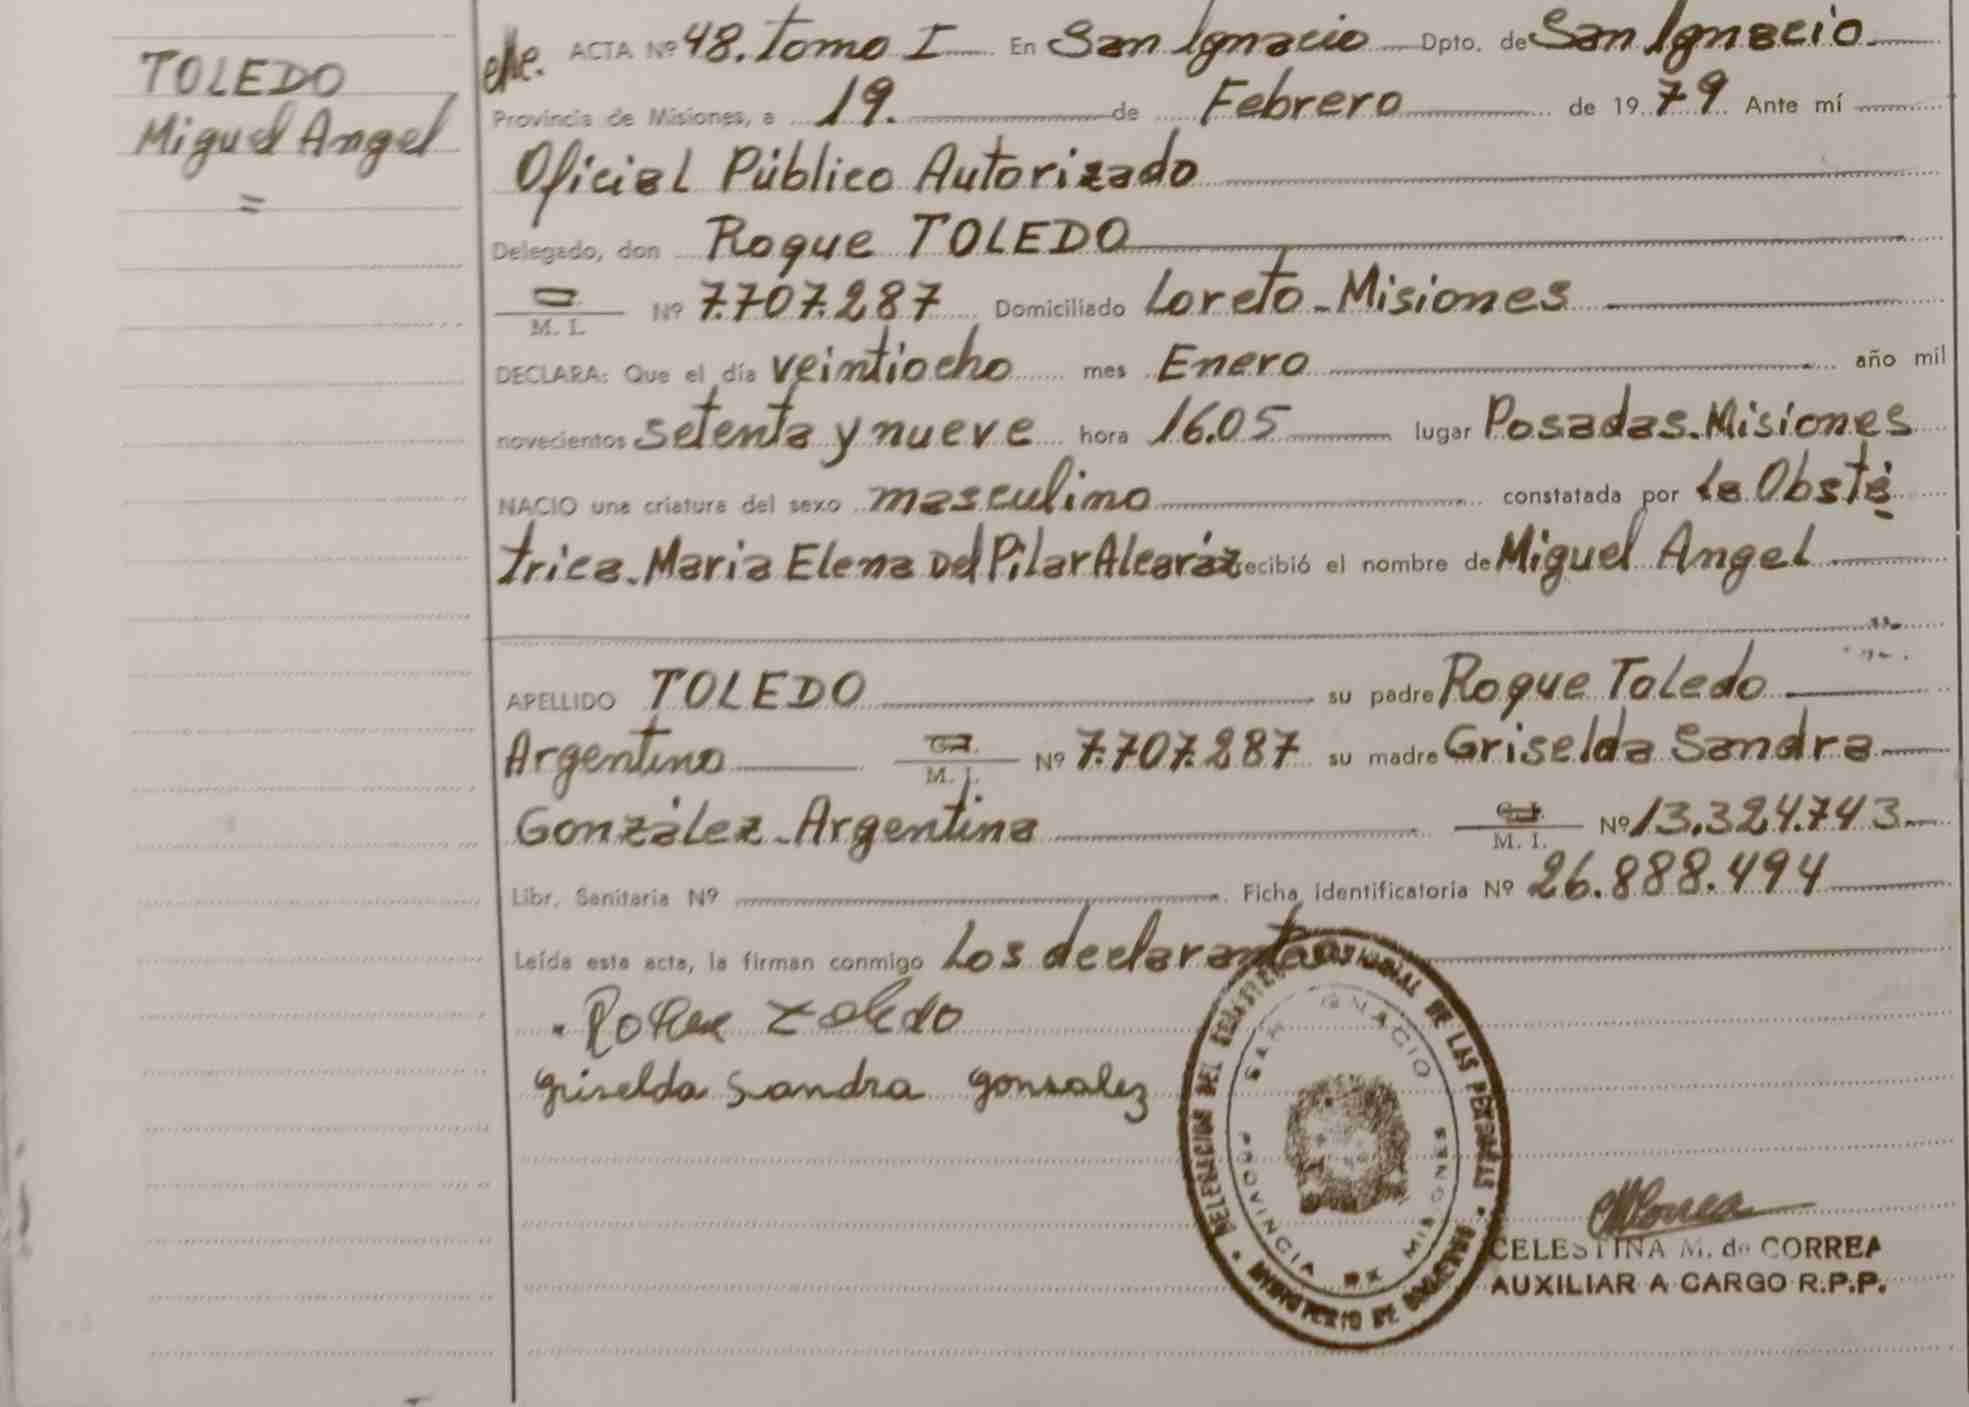 TOLEDO
Miguel Angel
=
ACTA Nº 48. Tomo I En San Ignacio Dpto. de San Ignacio
Provincia de Misiones, a 19. de Febrero de 1979 Ante mí
Oficial Público Autorizado
Delegado, don Roque TOLEDO
M. I. Nº 7.707.287 Domiciliado Loreto - Misiones
DECLARA: Que el día veintiocho mes Enero año mil
novecientos setenta y nueve hora 16.05 lugar Posadas. Misiones
NACIO una criatura del sexo masculino constatada por la Obsté
trica. Maria Elena Del Pilar Alcaráz recibió el nombre de Miguel Angel
APELLIDO TOLEDO su padre Roque Toledo
Argentino M. I. Nº 7.707.287 su madre Griselda Sandra
González - Argentina C.I. M. I. Nº 13.324.743
Libr. Sanitaria Nº Ficha identificatoria Nº 26.888.494
Leída esta acta, la firman conmigo Los declarantes
Roque Toledo
Griselda Sandra Gonsalez
DELEGACION DEL REGISTRO PROVINCIAL DE LAS PERSONAS
SAN IGNACIO
PROVINCIA DE MISIONES
MINISTERIO DE GOBIERNO
CMCorrea
CELESTINA M. de CORREA
AUXILIAR A CARGO R.P.P.